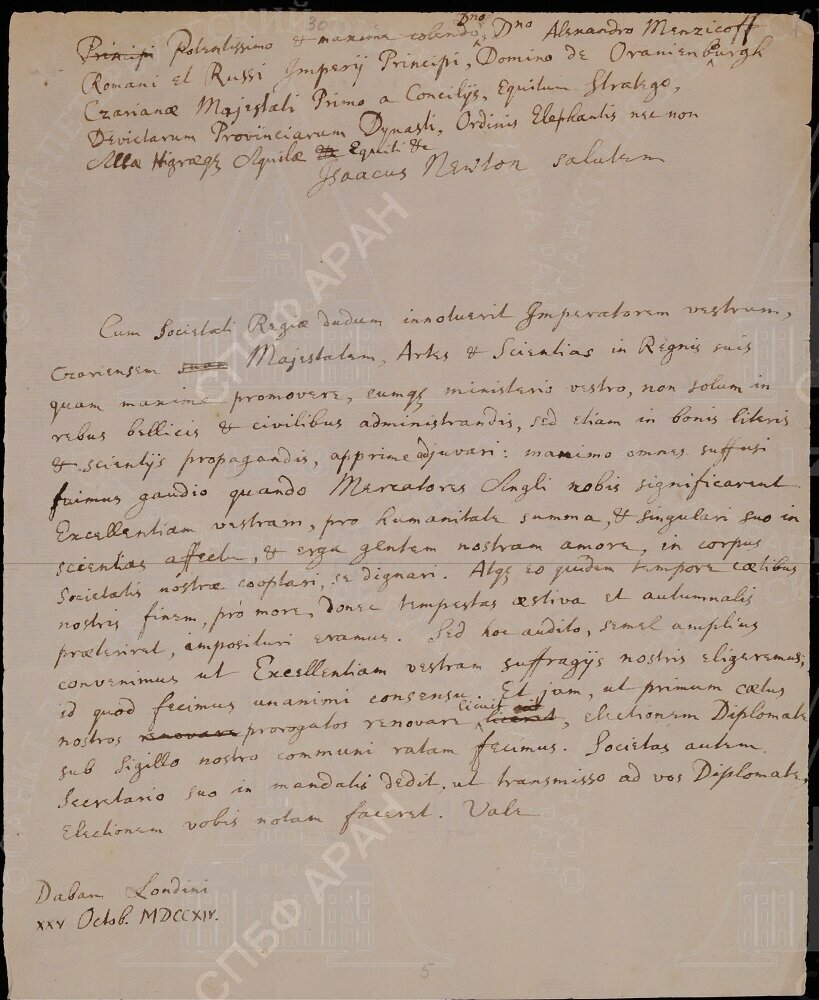 30
Principi Potentissimo & maxime colendo, Dno Dno Alexandro Menzicoff
Romani et Russi Imperij Principi, Domino de Oranienburgh
Czarianæ Majestati Primo a Concilijs, Equitum Stratego,
Devictarum Provinciarum Dynasti, Ordinis Elephantis nec non
Albæ Nigræq Aquilæ Equiti &c
Isaacus Newton salutem
Cum Societati Regiæ dudum innotuerit Imperatorem vestrum,
Czariensem suam Majestatem, Artes & Scientias in Regnis suis
quam maxime promovere, eumq ministerio vestro, non solum in
rebus bellicis & civilibus administrandis, sed etiam in bonis literis
& scientijs propagandis, apprime adjuvari: maximo omnes suffusi
fuimus gaudio quando Mercatores Angli nobis significarent
Excellentiam vestram, pro humanitate summa, & singulari suo in
scientias affectu, & erga gentem nostram amore, in corpus
Societatis nostræ cooptari, se dignari. Atq eo quidem tempore cœtibus
nostris finem, pro more, donec tempestas æstiva et autumnalis
præteriret, imposituri eramus. Sed hoc audito, semel amplius
convenimus ut Excellentiam vestram suffragijs nostris eligeremus;
id quod fecimus unanimi consensu. Et jam, ut primum cœtus
nostros renovare prorogatos renovare licuit liceret, electionem Diplomate
sub sigillo nostro communi ratam fecimus. Societas autem
Secretario suo in mandatis dedit, ut transmisso ad vos Diplomate,
Electionem vobis notam faceret. Vale
Dabam Londini
XXV Octob. MDCCXIV.
5
СПБФ АРАН
СПБФ АРАН